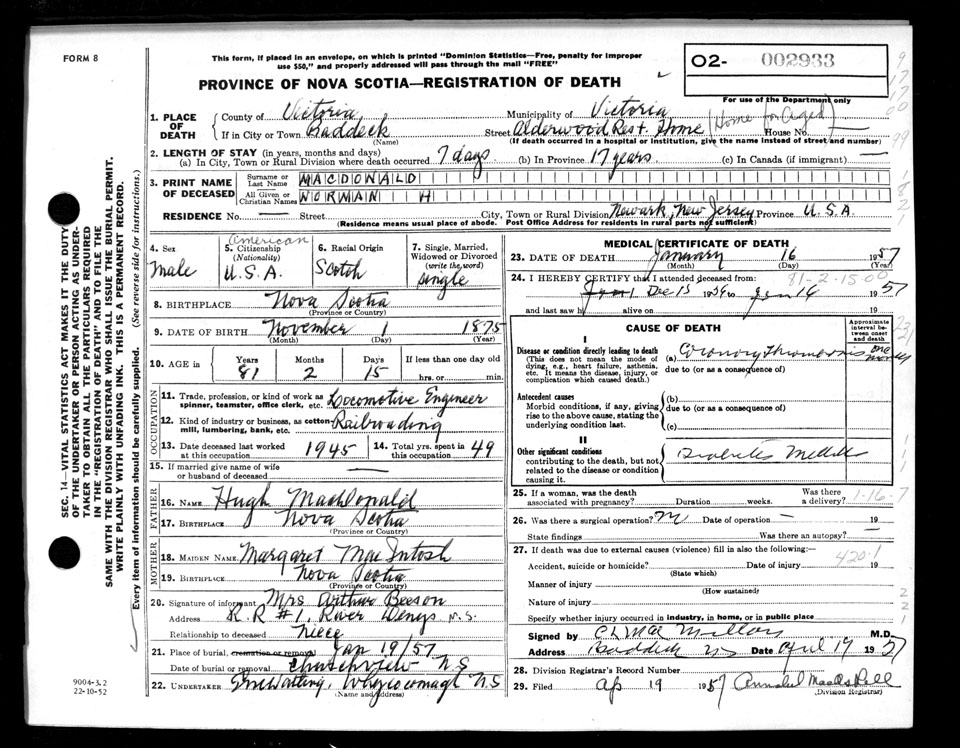 FORM 8
This form, if placed in an envelope, on which is printed "Dominion Statistics—Free, penalty for improper
use $50," and properly addressed will pass through the mail "FREE"
PROVINCE OF NOVA SCOTIA—REGISTRATION OF DEATH
O2- 002933
For use of the Department only
1. PLACE OF DEATH
County of Victoria Municipality of Victoria
If in City or Town Baddeck Street Alderwood Rest Home (Home for Aged) House No. —
(Name) (If death occurred in a hospital or institution, give the name instead of street and number)
2. LENGTH OF STAY (in years, months and days)
(a) In City, Town or Rural Division where death occurred 7 days (b) In Province 17 years (c) In Canada (if immigrant) —
3. PRINT NAME OF DECEASED
Surname or Last Name MACDONALD
All Given or Christian Names NORMAN H
RESIDENCE No. — Street City, Town or Rural Division Newark, New Jersey Province U.S.A.
(Residence means usual place of abode. Post Office Address for residents in rural parts not sufficient)
4. Sex Male
5. Citizenship (Nationality) American U.S.A.
6. Racial Origin Scotch
7. Single, Married, Widowed or Divorced (write the word) single
8. BIRTHPLACE Nova Scotia
(Province or Country)
9. DATE OF BIRTH November 1 1875
(Month) (Day) (Year)
10. AGE in Years 81 Months 2 Days 15 If less than one day old hrs. or min.
OCCUPATION
11. Trade, profession, or kind of work as spinner, teamster, office clerk, etc. Locomotive Engineer
12. Kind of industry or business, as cotton-mill, lumbering, bank, etc. Railroading
13. Date deceased last worked at this occupation 1945 14. Total yrs. spent in this occupation 49
15. If married give name of wife or husband of deceased —
FATHER
16. NAME Hugh MacDonald
17. BIRTHPLACE Nova Scotia
(Province or Country)
MOTHER
18. MAIDEN NAME Margaret MacIntosh
19. BIRTHPLACE Nova Scotia
(Province or Country)
20. Signature of informant Mrs Arthur Beeson
Address R.R #1, River Denys N.S.
Relationship to deceased niece
21. Place of burial, cremation or removal Jan 19/57
Date of burial or removal N.S
22. UNDERTAKER Whycocomagh N.S
(Name and address)
MEDICAL CERTIFICATE OF DEATH
23. DATE OF DEATH January 16 1957
(Month) (Day) (Year)
24. I HEREBY CERTIFY that I attended deceased from: 81-2-15-00
Dec 15 1956 to Jan 16 1957
and last saw h alive on 19
CAUSE OF DEATH
Approximate interval between onset and death
I
Disease or condition directly leading to death (a) Coronary Thrombosis
(This does not mean the mode of dying, e.g., heart failure, asthenia, etc. It means the disease, injury, or complication which caused death.) due to (or as a consequence of)
Antecedent causes (b)
Morbid conditions, if any, giving rise to the above cause, stating the underlying condition last. due to (or as a consequence of)
(c)
II
Other significant conditions
contributing to the death, but not related to the disease or condition causing it. Diabetes Mellitus
25. If a woman, was the death associated with pregnancy? Duration weeks. Was there a delivery? 1-16-7
26. Was there a surgical operation? Date of operation — 19
State findings Was there an autopsy? —
27. If death was due to external causes (violence) fill in also the following:—
420.1
Accident, suicide or homicide? Date of injury 19
(State which)
Manner of injury
(How sustained)
Nature of injury
Specify whether injury occurred in industry, in home, or in public place
Signed by C L MacMillan M.D.
Address Baddeck NS Date April 17 1957
28. Division Registrar's Record Number
29. Filed Ap 19 1957 Annabel MacAskill
(Division Registrar)
SEC. 14—VITAL STATISTICS ACT MAKES IT THE DUTY
OF THE UNDERTAKER OR PERSON ACTING AS UNDER-
TAKER TO OBTAIN ALL THE PARTICULARS REQUIRED
IN THE "REGISTRATION OF DEATH" AND TO FILE THE
SAME WITH THE DIVISION REGISTRAR WHO SHALL ISSUE THE BURIAL PERMIT.
WRITE PLAINLY WITH UNFADING INK. THIS IS A PERMANENT RECORD.
Every item of information should be carefully supplied. (See reverse side for instructions.)
9004-3.2
22-10-52